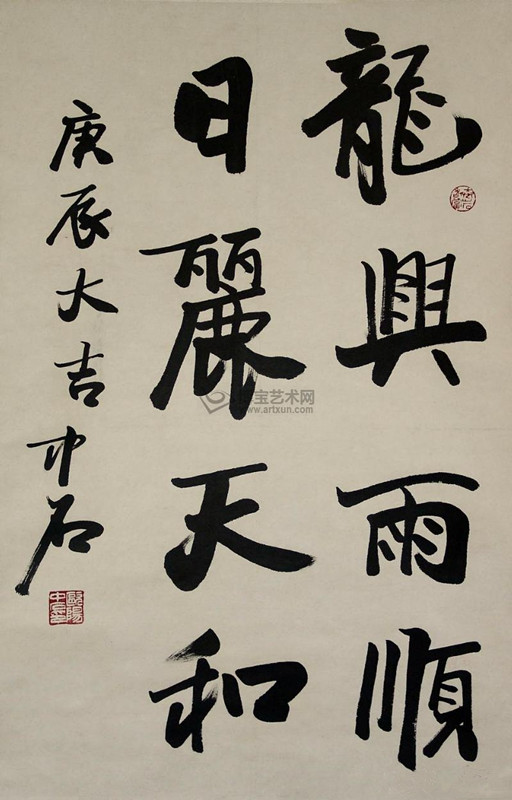 龍興雨順
日麗天和
庚辰大吉中石
歐陽中石
博宝艺术网
www.artxun.com